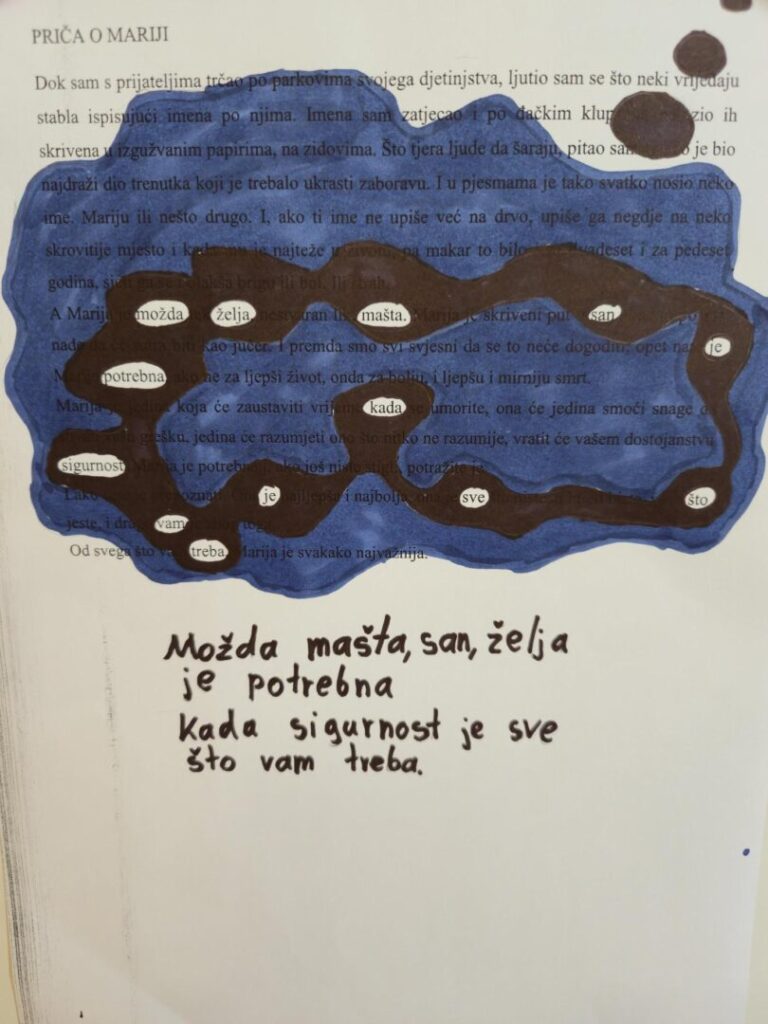 PRIČA O MARIJI
Dok sam s prijateljima trčao po parkovima svojega djetinjstva, ljutio sam se što neki vrijeđaju
stabla ispisujući imena po njima. Imena sam zatjecao i po đačkim ih
skrivena u izgužvanim papirima, na zidovima. Što tjera ljude da šaraju, pitao je bio
najdraži dio trenutka koji je trebalo ukrasti zaboravu. I u pjesmama je tako svatko nosio neko
ime. Mariju ili nešto drugo. I, ako ti ime ne upiše već na drvo, upiše ga negdje na neko
skrovitije mjesto i kada mu je najteže u životu, pa makar to bilo dvadeset i za pedeset
godina, bol.
A Marija možda želja, mašta. Marija je skriveni put san
kao jučer. I premda smo svi svjesni da se to neće dogoditi, opet je
potrebna, ako ne za ljepši život, onda za bolju, i ljepšu i mirniju smrt.
Marija koja će zaustaviti vrijeme kada umorite, ona će jedina smoći snage
grešku, jedina će razumjeti ono što nitko ne razumije, vratit će vašem dostojanstvu
sigurnost. Marija je potrebna potražite je.
je najljepša i najbolja, sve što
jeste, i vam
Od svega što treba, Marija je svakako najvažnija.
Možda mašta, san, želja
je potrebna
Kada sigurnost je sve
što vam treba.